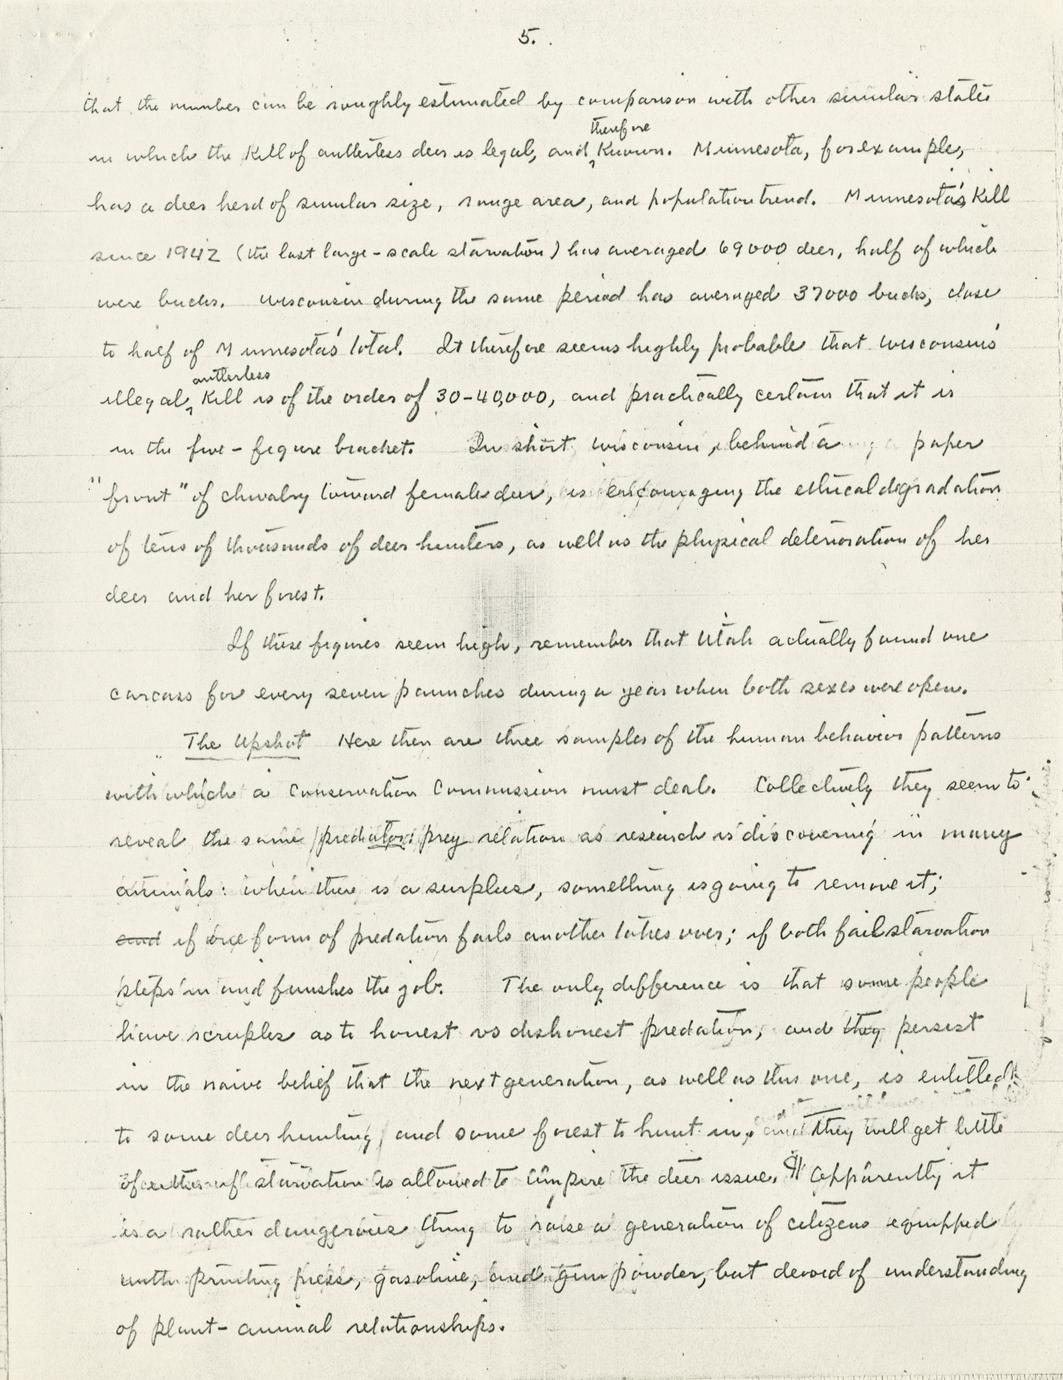 5.
that the number can be roughly estimated by comparison with other similar states
in which the kill of antlerless deer is legal, and therefore known. Minnesota, for example,
has a deer herd of similar size, range area, and population trend. Minnesota's kill
since 1942 (the last large-scale starvation) has averaged 69000 deer, half of which
were bucks. Wisconsin during the same period has averaged 37000 bucks, close
to half of Minnesota's total. It therefore seems highly probable that Wisconsin's
illegal antlerless kill is of the order of 30-40,000, and practically certain that it is
in the five-figure bracket. In short, Wisconsin, behind a paper
"front" of chivalry toward female deer, is encouraging the ethical degradation
of tens of thousands of deer hunters, as well as the physical deterioration of her
deer and her forest.
If these figures seem high, remember that Utah actually found one
carcass for every seven paunches during a year when both sexes were open.
The Upshot Here then are three samples of the human behavior patterns
with which a Conservation Commission must deal. Collectively they seem to
reveal the same predator:prey relation as research is discovering in many
animals: when there is a surplus, something is going to remove it;
and if one form of predation fails another takes over; if both fail starvation
steps in and finishes the job. The only difference is that some people
have scruples as to honest vs dishonest predation, and they persist
in the naive belief that the next generation, as well as this one, is entitled
to some deer hunting, and some forest to hunt in, and they will get little
of either if starvation is allowed to umpire the deer issue. ¶ Apparently it
is a rather dangerous thing to raise a generation of citizens equipped
with printing press, gasoline, and gunpowder, but devoid of understanding
of plant-animal relationships.